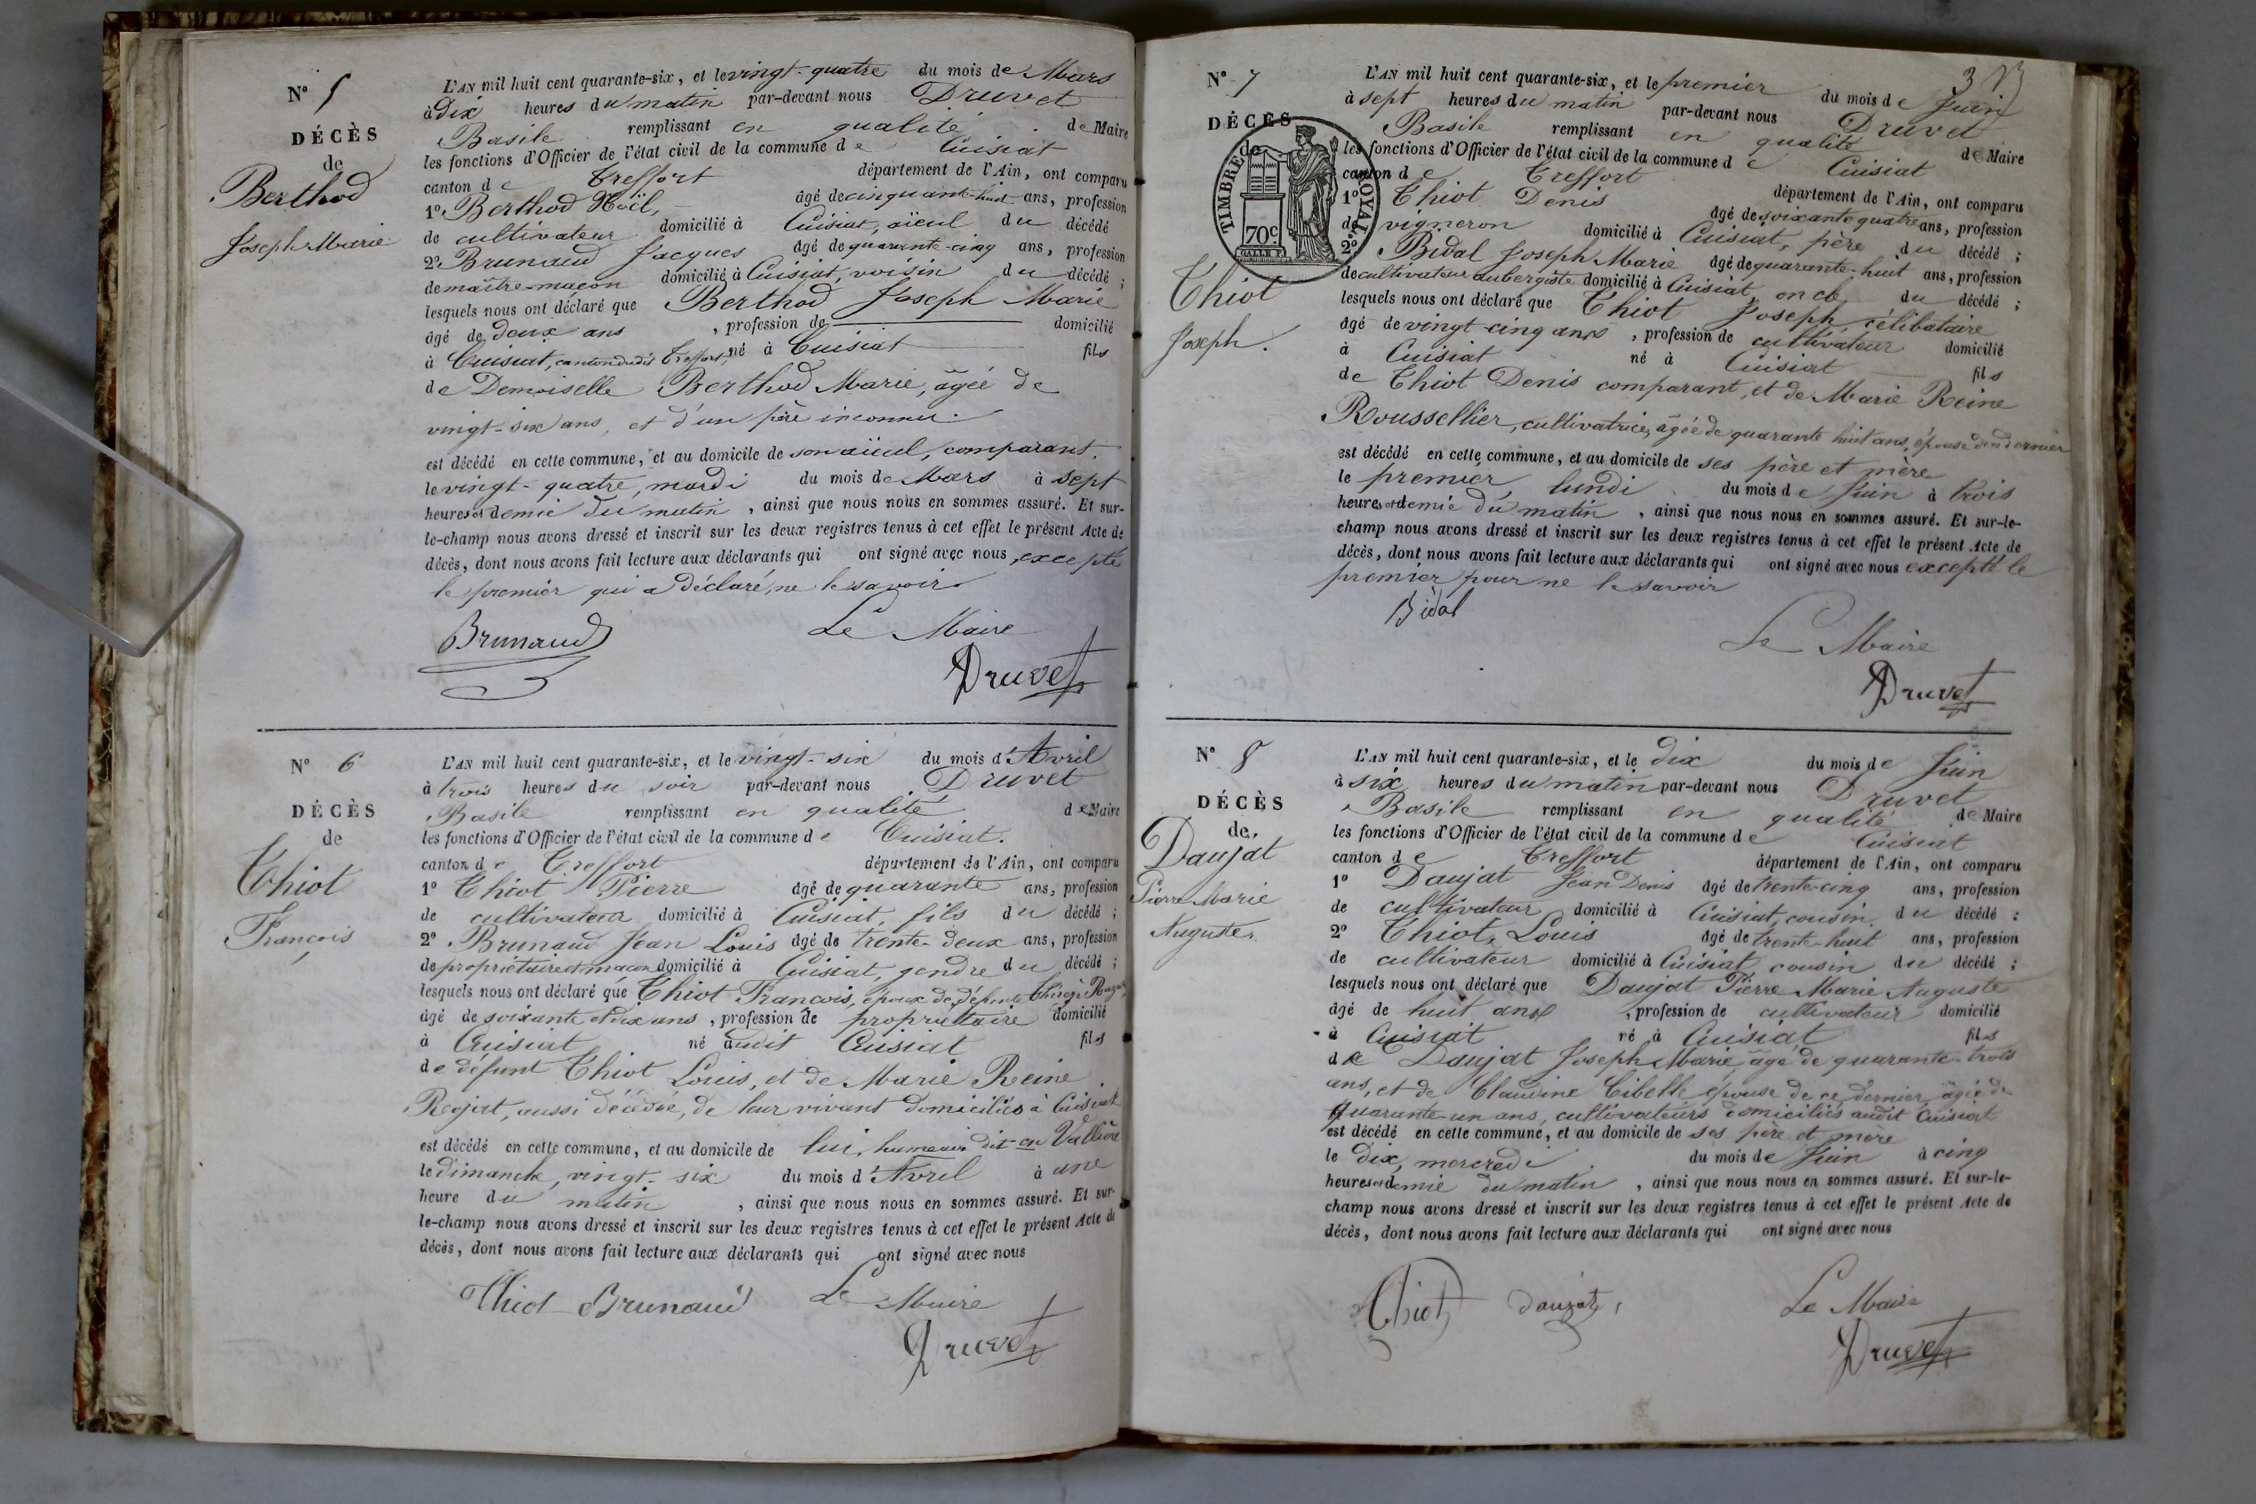 N° 5
DÉCÈS
de
Berthod
Joseph Marie
L'AN mil huit cent quarante-six, et le vingt-quatre du mois de Mars
à dix heures du matin par-devant nous Druvet
Basile remplissant en qualité de Maire
les fonctions d'Officier de l'état civil de la commune de Cuisiat
canton de Treffort département de l'Ain, ont comparu
1° Berthod Noël, âgé de cinquante-huit ans, profession
de cultivateur domicilié à Cuisiat, aïeul du décédé
2° Brunaud Jacques âgé de quarante-cinq ans, profession
de maître-maçon domicilié à Cuisiat, voisin du décédé ;
lesquels nous ont déclaré que Berthod Joseph Marie
âgé de deux ans , profession de domicilié
à Cuisiat, canton dudit Treffort, né à Cuisiat fils
de Demoiselle Berthod Marie, âgée de
vingt-six ans, et d'un père inconnu
est décédé en cette commune, et au domicile de son aïeul, comparant.
le vingt-quatre, mardi du mois de Mars à sept
heures et demie du matin , ainsi que nous nous en sommes assuré. Et sur-
le-champ nous avons dressé et inscrit sur les deux registres tenus à cet effet le présent Acte de
décès, dont nous avons fait lecture aux déclarants qui ont signé avec nous, excepté
le premier qui a déclaré, ne le savoir
Brunaud Le Maire
Druvet
N° 6
DÉCÈS
de
Thiot
François
L'AN mil huit cent quarante-six, et le vingt-six du mois d'Avril
à trois heures du soir par-devant nous Druvet
Basile remplissant en qualité de Maire
les fonctions d'Officier de l'état civil de la commune de Cuisiat.
canton de Treffort département de l'Ain, ont comparu
1° Thiot Pierre âgé de quarante ans, profession
de cultivateur domicilié à Cuisiat, fils du décédé ;
2° Brunaud Jean Louis âgé de trente-deux ans, profession
de propriétaire et maçon domicilié à Cuisiat, gendre du décédé ;
lesquels nous ont déclaré que Thiot François, époux de défunte
âgé de soixante dix ans , profession de propriétaire domicilié
à Cuisiat né audit Cuisiat fils
de défunt Thiot Louis, et de Marie Reine
aussi décédée, de leur vivant domiciliés à Cuisiat
est décédé en cette commune, et au domicile de lui, hameau dit en Vallière
le dimanche, vingt-six du mois d'Avril à une
heure du matin , ainsi que nous nous en sommes assuré. Et sur-
le-champ nous avons dressé et inscrit sur les deux registres tenus à cet effet le présent Acte de
décès, dont nous avons fait lecture aux déclarants qui ont signé avec nous
Thiot Brunaud Le Maire
Druvet
3
N° 7
DÉCÈS
de
TIMBRE ROYAL
70c
Thiot
Joseph.
L'AN mil huit cent quarante-six, et le premier du mois de Juin
à sept heures du matin par-devant nous Druvet
Basile remplissant en qualité de Maire
les fonctions d'Officier de l'état civil de la commune de Cuisiat
canton de Treffort département de l'Ain, ont comparu
1° Thiot Denis âgé de soixante quatre ans, profession
de vigneron domicilié à Cuisiat, père du décédé ;
2° Bidal Joseph Marie âgé de quarante-huit ans, profession
de cultivateur aubergiste domicilié à Cuisiat, oncle du décédé ;
lesquels nous ont déclaré que Thiot Joseph, célibataire
âgé de vingt-cinq ans , profession de cultivateur domicilié
à Cuisiat né à Cuisiat fils
de Thiot Denis comparant, et de Marie Reine
Roussellier, cultivatrice, âgée de quarante huit ans, épouse de ce dernier
est décédé en cette commune, et au domicile de ses père et mère
le premier lundi du mois de Juin à trois
heures et demie du matin , ainsi que nous nous en sommes assuré. Et sur-le-
champ nous avons dressé et inscrit sur les deux registres tenus à cet effet le présent Acte de
décès, dont nous avons fait lecture aux déclarants qui ont signé avec nous excepté le
premier pour ne le savoir
Bidal
Le Maire
Druvet
N° 8
DÉCÈS
de
Daujat
Pierre Marie
Auguste
L'AN mil huit cent quarante-six, et le dix du mois de Juin
à six heures du matin par-devant nous Druvet
Basile remplissant en qualité de Maire
les fonctions d'Officier de l'état civil de la commune de Cuisiat
canton de Treffort département de l'Ain, ont comparu
1° Daujat Jean Denis âgé de trente-cinq ans, profession
de cultivateur domicilié à Cuisiat, cousin du décédé ;
2° Thiot, Louis âgé de trente-huit ans, profession
de cultivateur domicilié à Cuisiat, cousin du décédé ;
lesquels nous ont déclaré que Daujat Pierre Marie Auguste
âgé de huit ans , profession de cultivateur domicilié
à Cuisiat né à Cuisiat fils
de Daujat Joseph Marie âgé de quarante-trois
ans, et de Claudine Cibelle épouse de ce dernier, âgée de
quarante-un ans, cultivateurs domiciliés audit Cuisiat
est décédé en cette commune, et au domicile de ses père et mère
le dix, mercredi du mois de Juin à cinq
heures et demie du matin , ainsi que nous nous en sommes assuré. Et sur-le-
champ nous avons dressé et inscrit sur les deux registres tenus à cet effet le présent Acte de
décès, dont nous avons fait lecture aux déclarants qui ont signé avec nous
Thiot Daujat Le Maire
Druvet